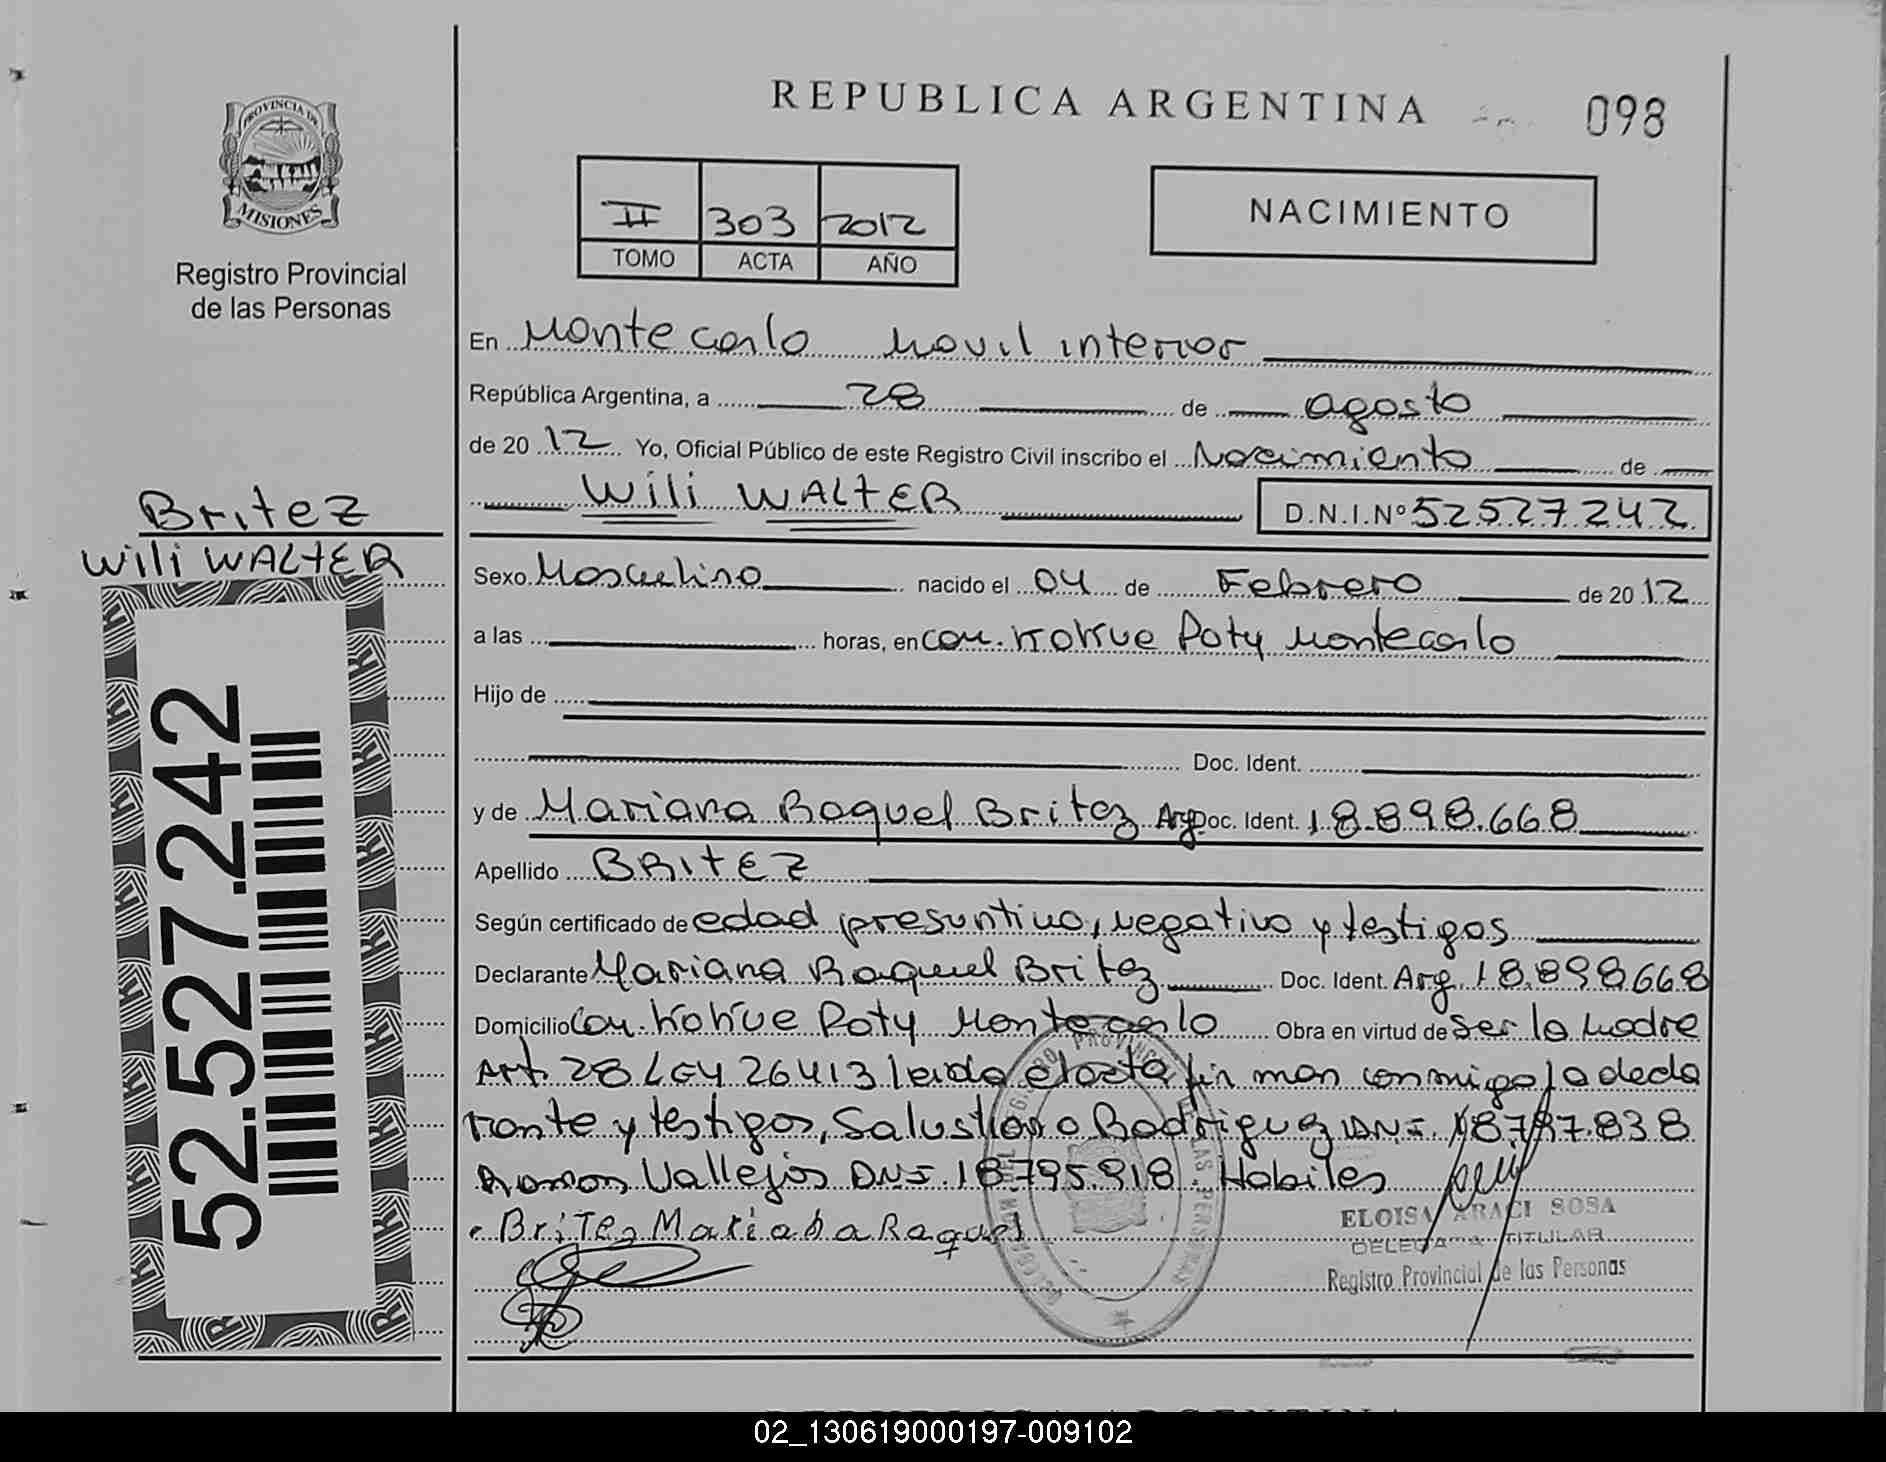 REPUBLICA ARGENTINA
098
PROVINCIA DE
MISIONES
Registro Provincial
de las Personas
II 303 2012
TOMO ACTA AÑO
NACIMIENTO
En Montecarlo Movil interior
República Argentina, a 28 de agosto
de 20 12 Yo, Oficial Público de este Registro Civil inscribo el Nacimiento de
Wili WALTER D.N.I.Nº 52527242
Britez
Wili WALTER
52.527.242
Sexo Masculino nacido el 04 de Febrero de 20 12
a las horas, en com. Kokue Poty Montecarlo
Hijo de
Doc. Ident.
y de Mariana Raquel Britez Arg Doc. Ident. 18.898.668
Apellido BRITEZ
Según certificado de edad presuntivo, negativo y testigos
Declarante Mariana Raquel Britez Doc. Ident. Arg. 18.898668
Domicilio Com. Kokue Poty Montecarlo Obra en virtud de ser la madre
Art. 28 LEY 26413 leida el acta fir man conmigo la decla
rante y testigos, Salustiano Rodriguez DNI. 18787.838
Ramon Vallejos DNI. 18795.918. Habiles
Britez Mariana Raquel
ELOISA ARACI SOSA
DELEGADA TITULAR
Registro Provincial de las Personas
02_130619000197-009102